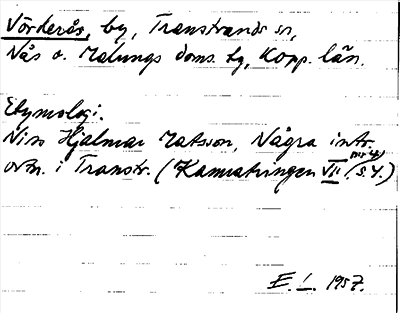 Vörderås, by, Transtrands sn,
Nås o. Malungs doms. bg, Kopp. län.
Etymologi.
Nils Hjalmar Matsson, Några intr.
ortn. i Transtr. (Kamratringen VII (s. 4.)
E. I. 1957.